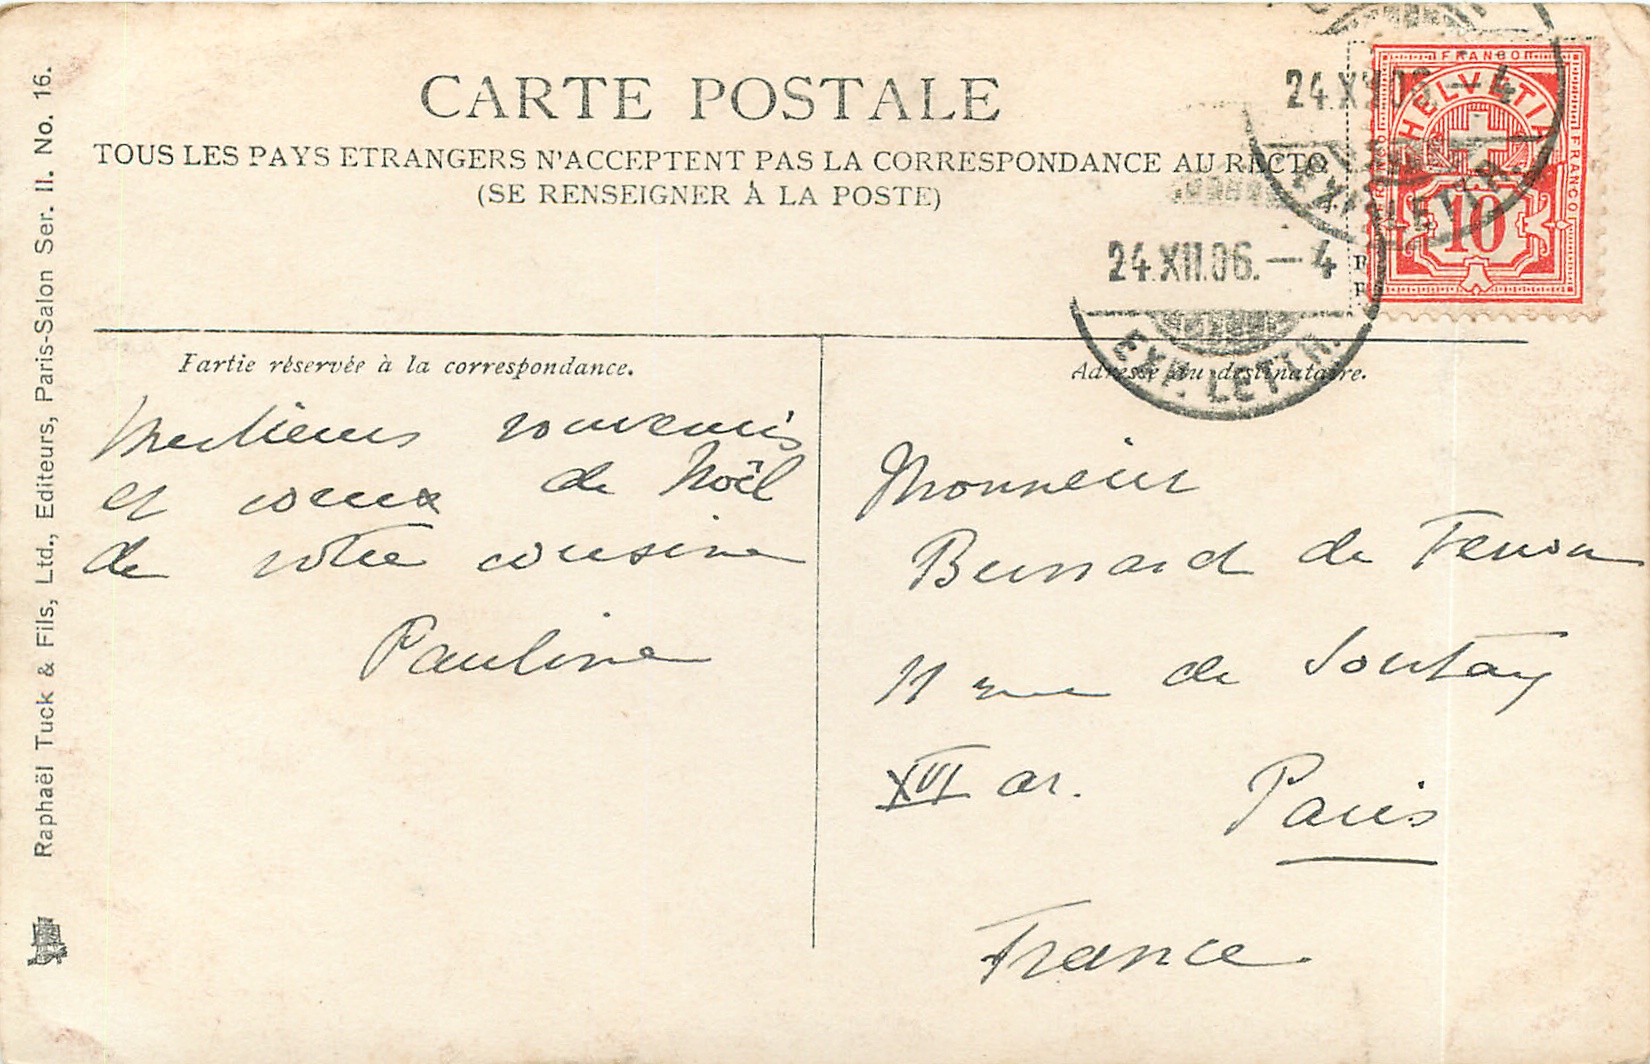 CARTE POSTALE
TOUS LES PAYS ETRANGERS N'ACCEPTENT PAS LA CORRESPONDANCE AU RECTO
(SE RENSEIGNER À LA POSTE)
FRANCO
HELVETIA
FRANCO
FRANCO
10
24.XII.06.–4
EXP. LETTR.
24.XII.06.–4
EXP. LETTR.
Partie réservée à la correspondance.
Meilleurs souvenirs
et voeux de Noël
de votre cousine
Pauline
Adresse du destinataire.
Monsieur
Bernard de
11 rue de Sontay
XVI ar. Paris
France.
Raphaël Tuck & Fils, Ltd., Editeurs, Paris-Salon Ser. II. No. 16.